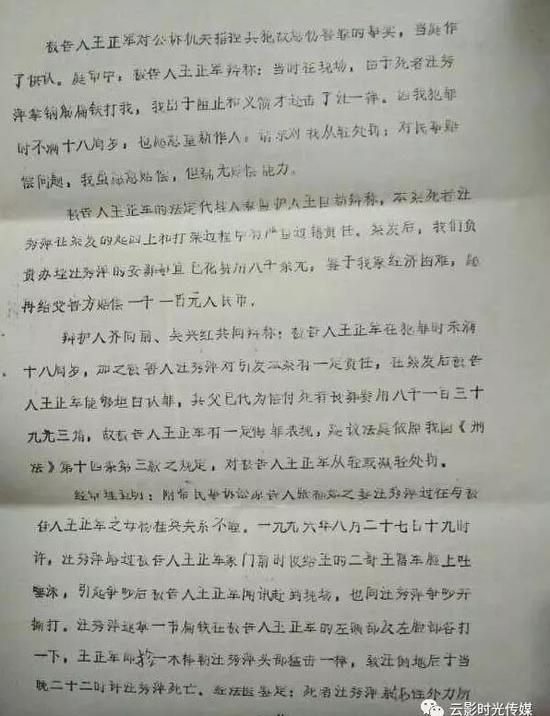 被告人王正军对公诉机关指控其犯故意伤害罪的事实，当庭作
了供认。庭审中，被告人王正军辩称：当时在现场，由于死者汪秀
萍拿钢筋扁铁打我，我出于阻止和义愤才还击了她一棒。因我犯罪
时不满十八周岁，也愿意重新作人。请求对我从轻处罚；对民事赔
偿问题，我虽愿意赔偿，但确无赔偿能力。
被告人王正军的法定代理人兼监护人王自新辩称，本案死者汪
秀萍在案发的起因上和打架过程中有严重过错责任。案发后，我们负
责办理汪秀萍的安葬事宜已花费用八千余元，鉴于我家经济困难，愿
再给受害方赔偿一千一百元人民币。
辩护人齐向前、吴兴红共同辩称：被告人王正军在犯罪时未满
十八周岁，加之被害人汪秀萍对引发本案有一定责任，在案发后被告
人王正军能够坦白认罪，其父已代为偿付死者丧葬费用八千一百三十
九元三角，故被告人王正军有一定悔罪表现，建议法庭依照我国《刑
法》第十四条第三款之规定，对被告人王正军从轻或减轻处罚。
经审理查明：附带民事诉讼原告人张福如之妻汪秀萍过往与被
告人王正军之母杨桂英关系不睦。一九九六年八月二十七日十九时
许，汪秀萍路过被告人王正军家门前时仅给王的二哥王富军脸上吐
唾沫，引起争吵后被告人王正军闻讯赶到现场，也同汪秀萍争吵并
撕打。汪秀萍遂拿一节扁铁在被告人王正军的左额部及左脸部各打
一下，王正军即拾一木棒朝汪秀萍头部猛击一棒，致汪倒地后于当
晚二十二时许汪秀萍死亡。经法医鉴定：死者汪秀萍系外力所
云影时光传媒